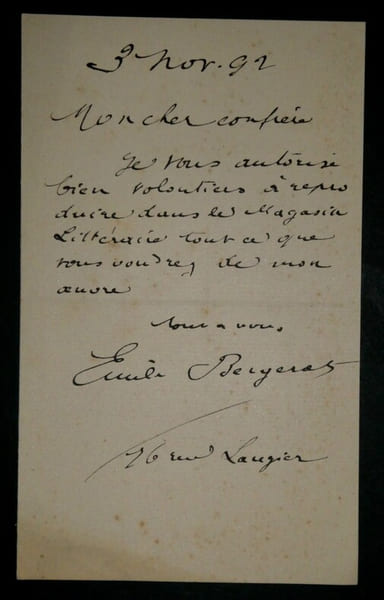 3 Nov. 92
Mon cher confrère
Je vous autorise
bien volontiers à repro
duire dans le Magasin
Littéraire tout ce que
vous voudrez de mon
œuvre
Tout à vous.
Emile Bergerat
76 rue Laugier